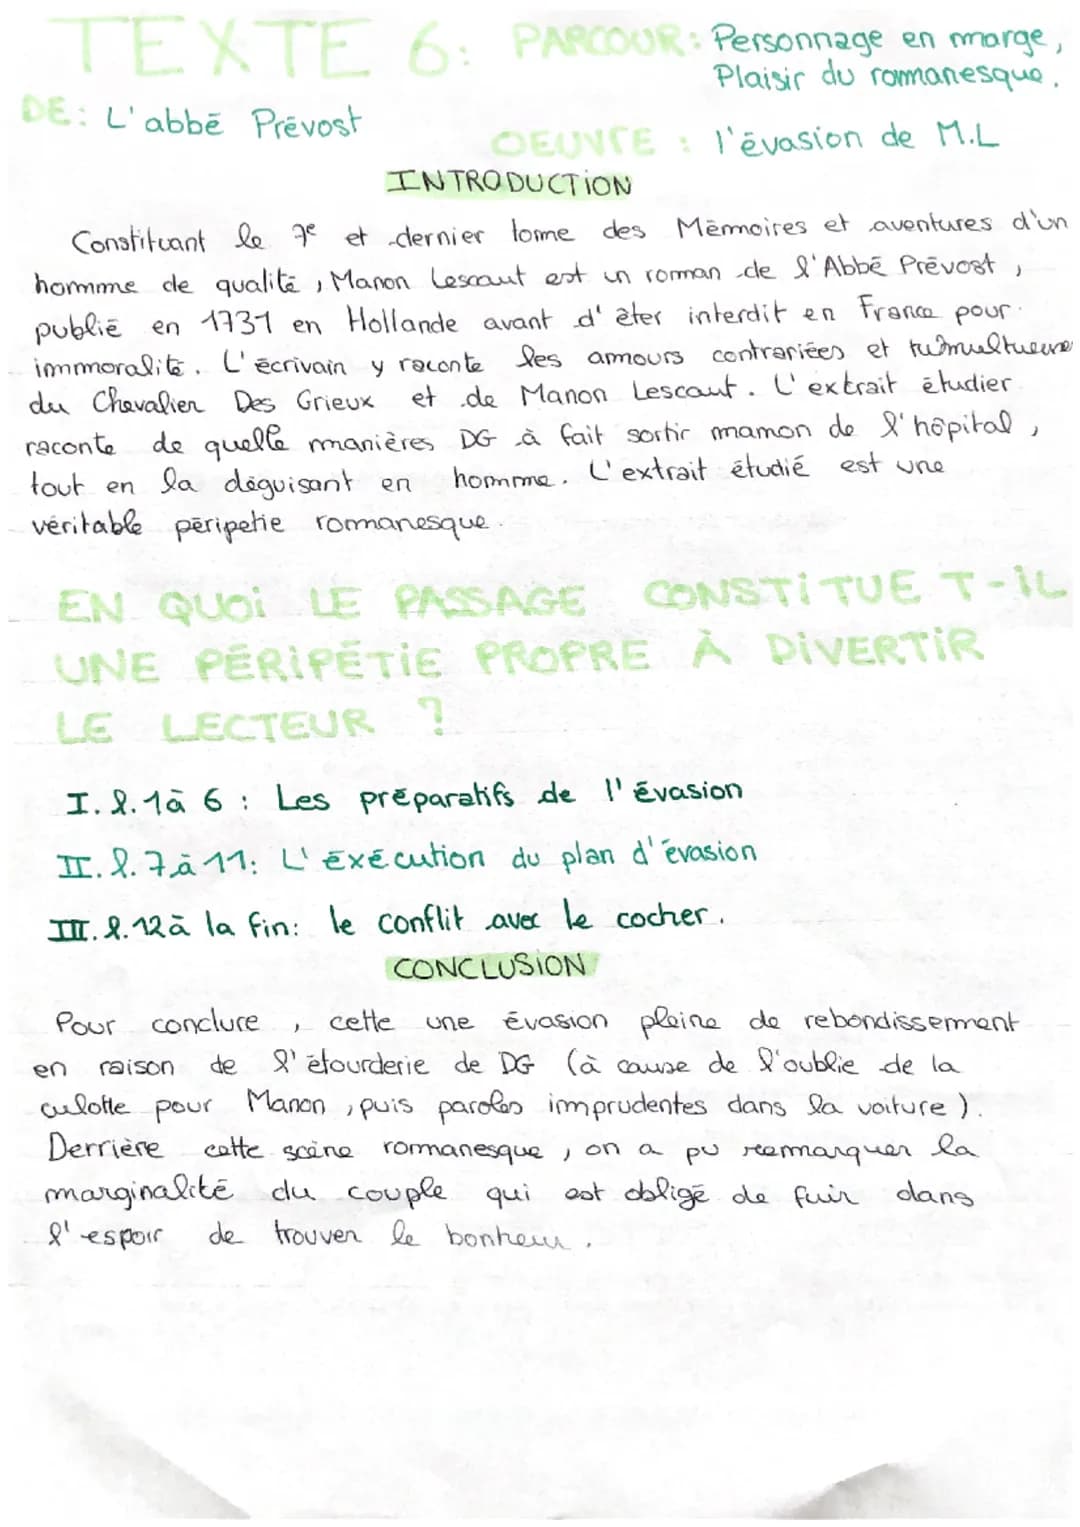 TEXTE 6: PARCOUR: Personnage en marge,
Plaisir du romanesque.
DE: L'abbé Prévost
OEUVrE : l'évasion de M.L
INTRODUCTION
Constituant le 7e et dernier tome des Mémoires et aventures d'un
homme de qualité, Manon Lescaut est un roman de l'Abbé Prévost,
publié en 1731 en Hollande avant d'êter interdit en France pour
immoralité. L'écrivain y raconte les amours contrariées et tumultueuse
du Chevalier Des Grieux et de Manon Lescaut. L'extrait étudier
raconte de quelle manières DG à fait sortir mamon de l'hôpital,
tout en la déguisant en homme. L'extrait étudié est une
véritable péripetie romanesque.
EN QUOI LE PASSAGE CONSTITUE T-IL
UNE PÉRIPÉTIE PROPRE À DIVERTIR
LE LECTEUR ?
I. l. 1à 6 : Les préparatifs de l'évasion
II. l. 7 à 11: L'éxécution du plan d'évasion
III. l. 12 à la fin: le conflit avec le cocher.
CONCLUSION
Pour conclure, cette une évasion pleine de rebondissement
en raison de l'étourderie de DG (à cause de l'oublie de la
culotte pour Manon, puis paroles imprudentes dans la voiture).
Derrière cette scène romanesque, on a pu remarquer la
marginalité du couple qui est obligé de fuir dans
l'espoir de trouver le bonheur.